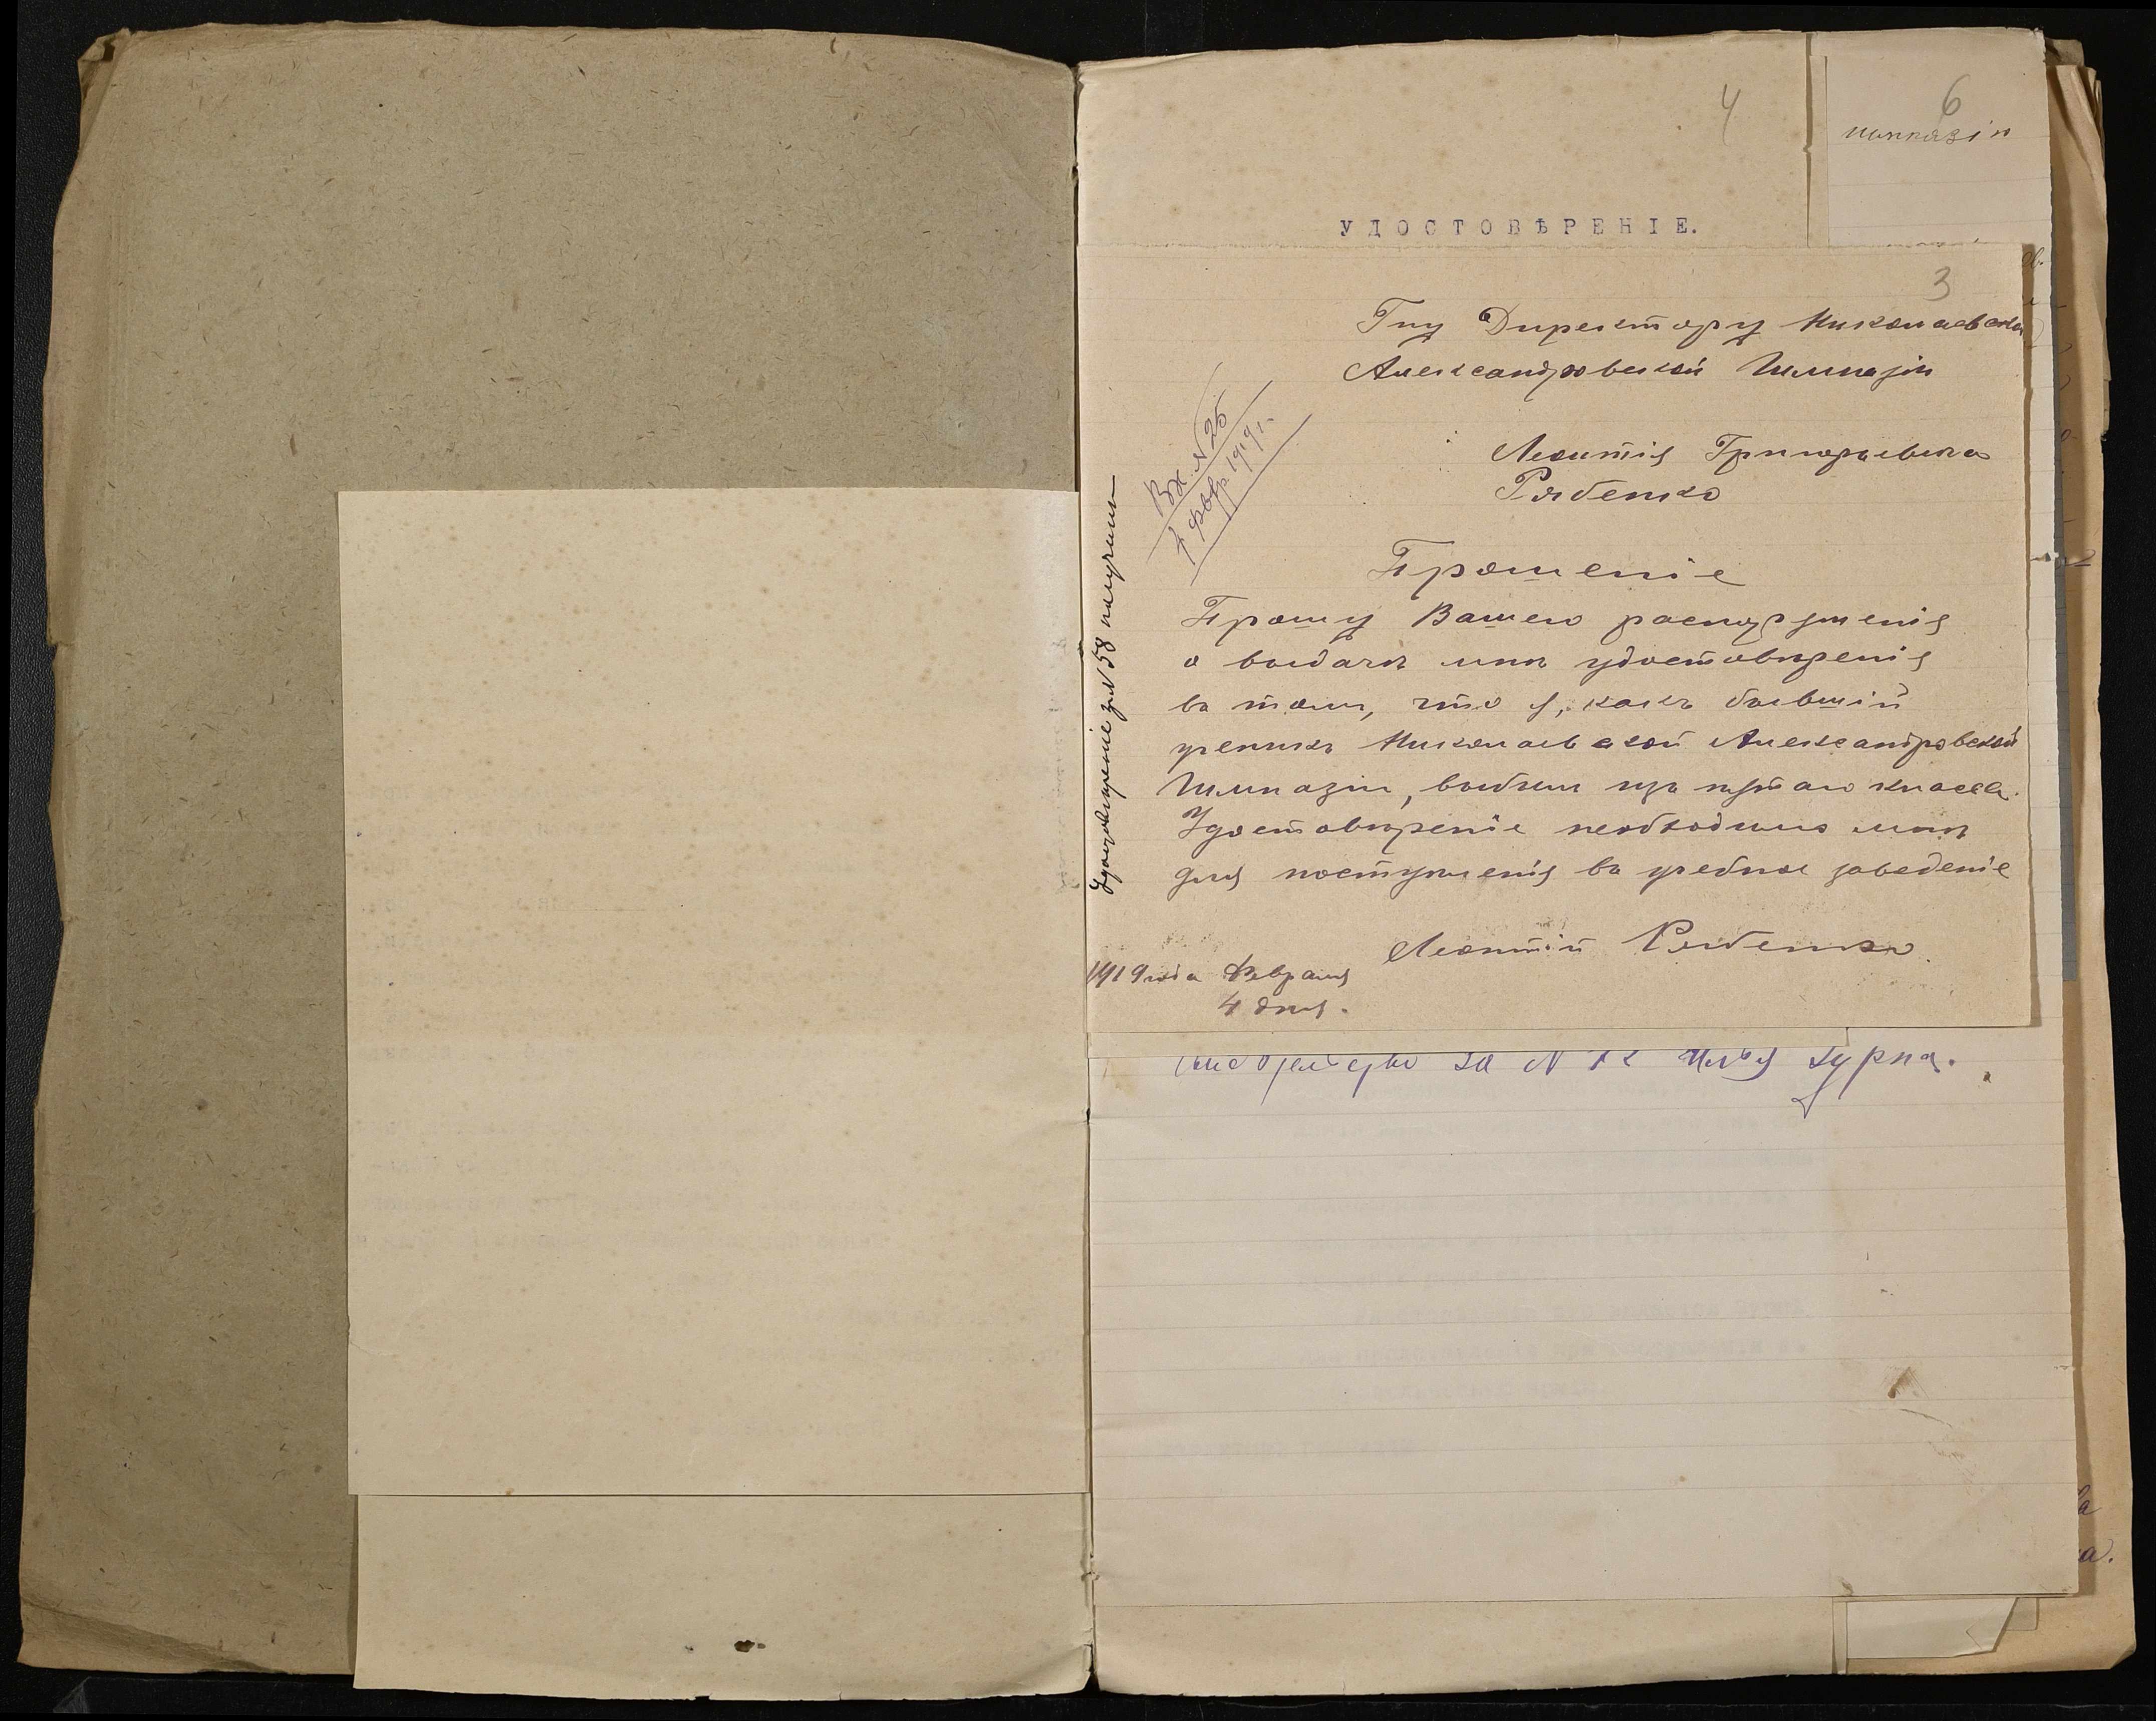 4
6
гимназіи
УДОСТОВѢРЕНІЕ.
3
Гну Директору Николаевской
Александровской Гимназіи
Леонтія Григорьевича
Рябенко
Вх. N 25
4 февр. 1919 г.
Прошеніе
Прошу Вашего распоряженія
о выдачѣ мнѣ удостовѣренія
въ томъ, что я, какъ бывшій
ученикъ Николаевской Александровской
Гимназіи, выбылъ изъ пятаго класса.
Удостовѣреніе необходимо мнѣ
для поступленія въ учебное заведеніе
Леонтій Рябенко.
1919 года Февраля
4 дня.
Удостовѣреніе за N 58 получилъ
за N